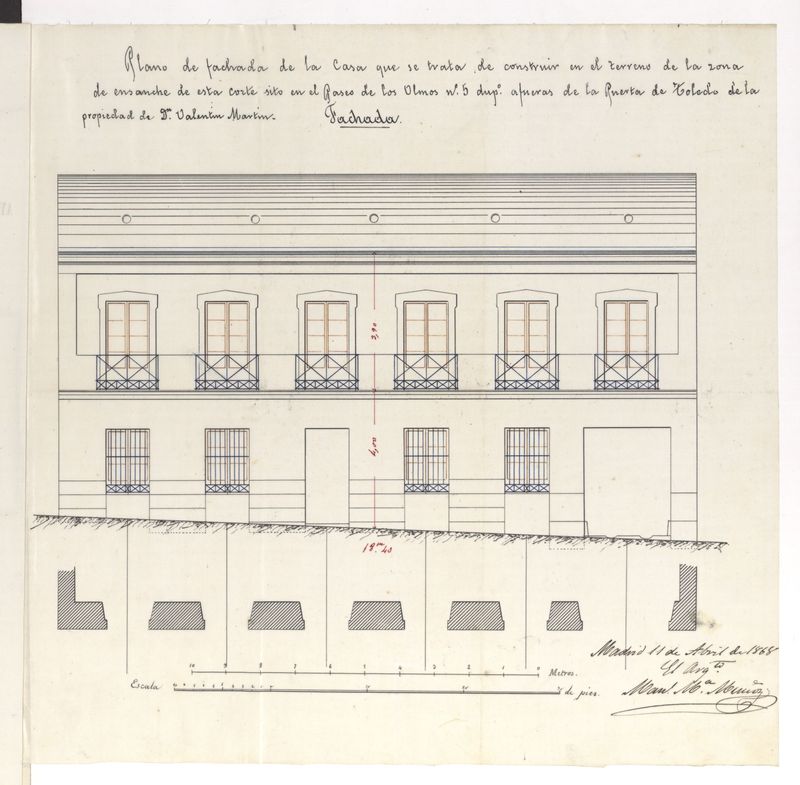 Plano de fachada de la Casa que se trata de construir en el terreno de la zona
de ensanche de esta corte sito en el Paseo de los Olmos n.º 5 dup.º afueras de la Puerta de Toledo de la
propiedad de D.n Valentin Martin.
Fachada.
3,90
4,00
18,m 40
10 9 8 7 6 5 4 3 2 1 0 Metros.
Escala
de pies.
Madrid 11 de Abril de 1868
El Arq.to
Man.l M.a Muñoz